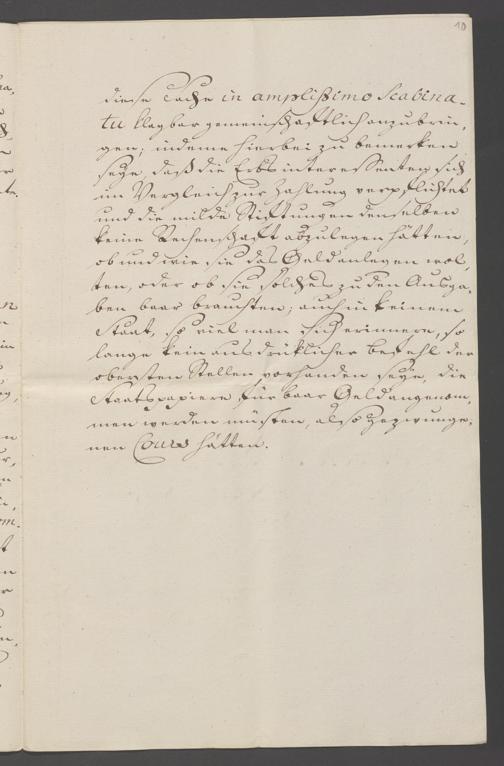 10
diese Sache in amplißimo Scabina-
tu klagbar gemeinschafftlich anzubrin,
gen; indeme hierbei zu bemerken
seye, daß die Erbsinteressenten sich
im Vergleich zur Zahlung verpflichtet
und die milde Stiftungen denselben
keine Rechenschafft abzulegen hätten,
ob und wie sie das Geld anlegen wol,
ten, oder ob sie solches zu den Ausga,
ben baar brauchten; auch in keinem
Staat, so viel man sich erinnere, so
lange kein ausdrücklicher befehl der
obersten Stellen vorhanden seye, die
Staatspapiere für baar Geld angenom,
men werden müsten, also gezwunge,
nen Cours hätten.